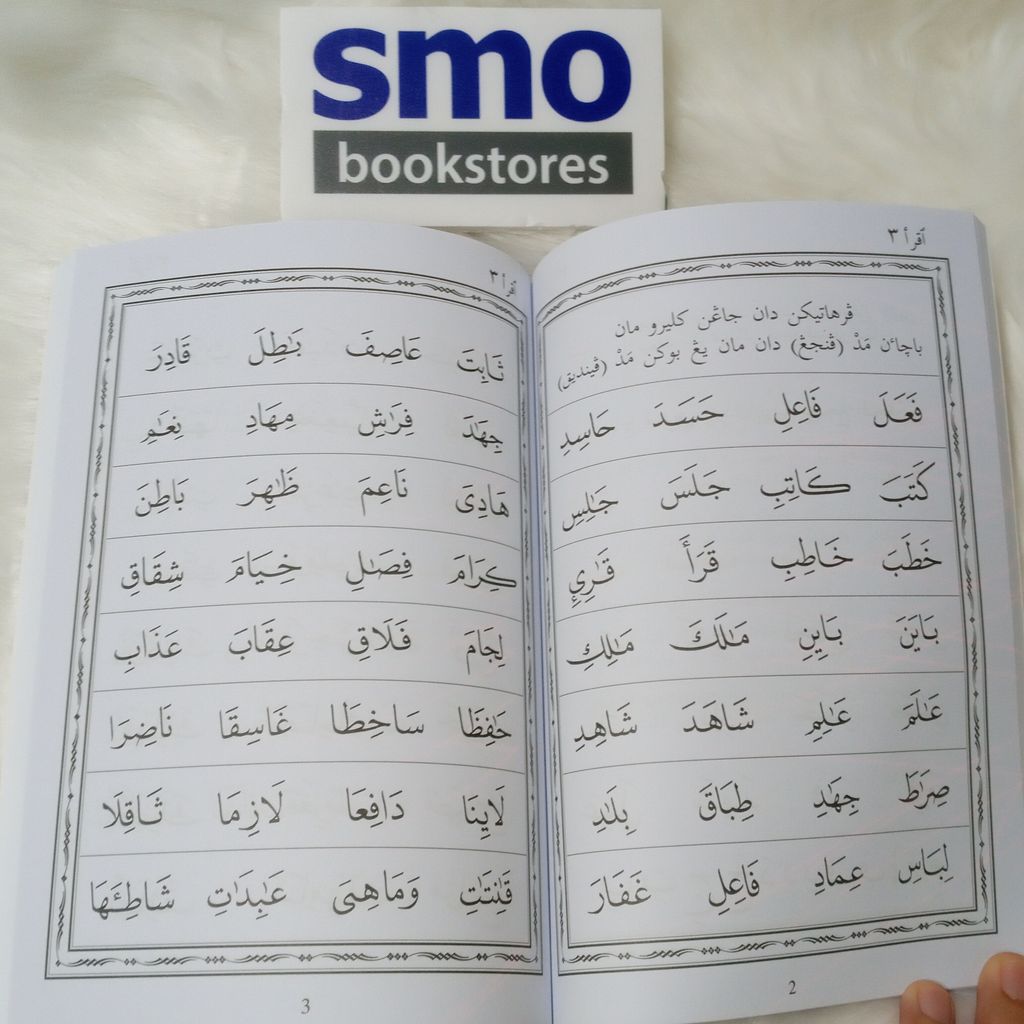 smo
bookstores
اقرأ ٣
ڤرهاتيكن دان جاڠن كليرو مان
باچاٴن مَدْ (ڤنجڠ) دان مان يڠ بوكن مَدْ (ڤينديق)
فَعَلَ فَاعِلِ حَسَدَ حَاسِدِ
كَتَبَ كَاتِبِ جَلَسَ جَٰلِسِ
خَطَبَ خَاطِبِ قَرَأَ قَٰرِئِ
بَايَنَ بَايِنِ مَٰلَكَ مَٰلِكِ
عَٰلَمَ عَٰلِمِ شَاهَدَ شَاهِدِ
صِرَٰطَ جِهَٰدِ طِبَاقَ بِلَٰدِ
لِبَاسِ عِمَادِ فَاعِلِ غَفَارَ
2
اقرأ ٣
ثَابِتَ عَاصِفَ بَٰطِلَ قَادِرَ
جِهَٰدَ فِرَٰشِ مِهَادِ نِعَٰمِ
هَادِىَ نَاعِمَ ظَٰهِرَ بَاطِنَ
كِرَامَ فِصَٰلِ خِيَامَ شِقَاقِ
لِجَامَ فَلَاقِ عِقَابَ عَذَابِ
حَٰفِظَا سَاخِطَا غَاسِقَا نَاضِرَا
لَايِنَا دَافِعَا لَازِمَا ثَاقِلَا
قَٰنِتَٰتِ وَمَاهِىَ عَٰبِدَٰتِ شَاطِئَهَا
3